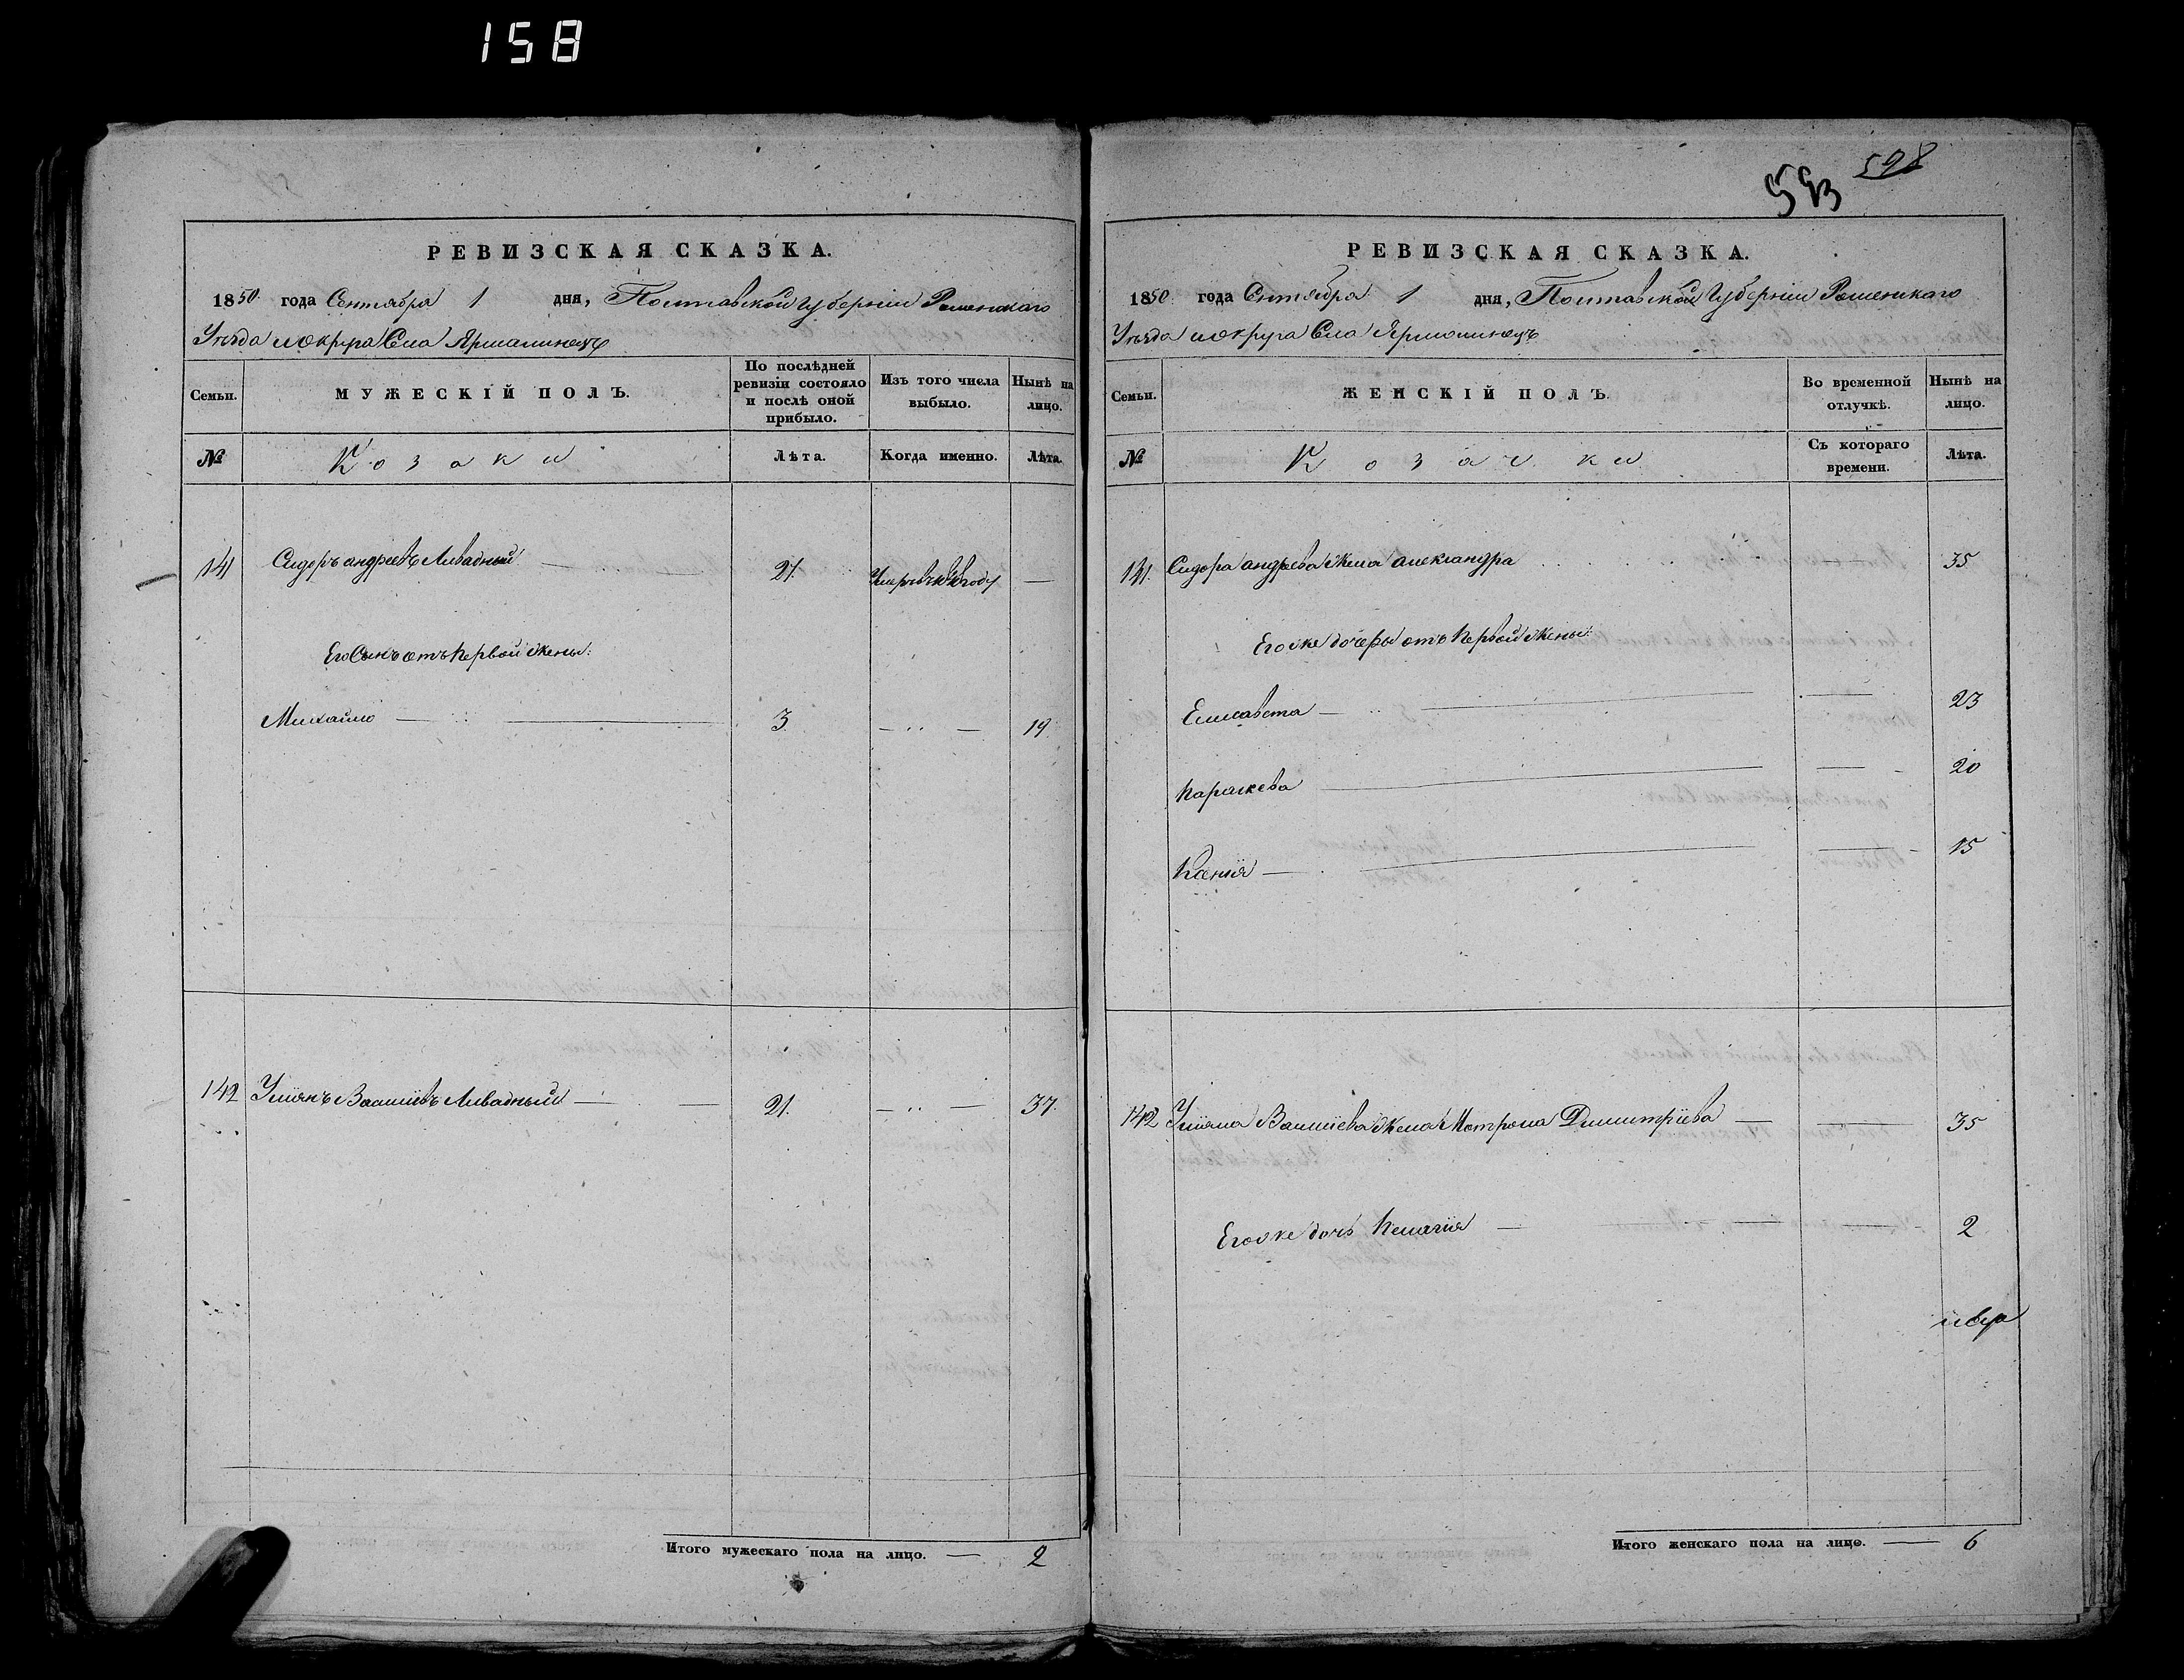 158
РЕВИЗСКАЯ СКАЗКА.
1850 года Сентября 1 дня, Полтавской Губерніи Роменскаго
Уѣзда и округа Села Ярмолинецъ
Семьи.
МУЖЕСКІЙ ПОЛЪ.
По послѣдней ревизіи состояло и послѣ оной прибыло.
Изъ того числа выбыло.
Нынѣ на лицо.
№
Козаки
Лѣта.
Когда именно.
Лѣта.
141 Сидоръ андреевъ Ливадный — 21. Умеръ въ году —
Его Сынъ отъ первой жены:
Михайло — 3 — 19
142 Улиянъ Василиевъ Ливадный — 21. — 37.
Итого мужескаго пола на лицо. — 2
593 598
РЕВИЗСКАЯ СКАЗКА.
1850 года Сентября 1 дня, Полтавской Губерніи Роменскаго
Уѣзда и округа Села Ярмолинецъ
Семьи.
ЖЕНСКІЙ ПОЛЪ.
Во временной отлучкѣ.
Нынѣ на лицо.
№
Козачки
Съ котораго времени.
Лѣта.
141. Сидора андреева жена александра — 35
Его же дочеры отъ первой жены:
Елисавета — 23
Параскева — 20
Ксенія — 15
142 Улияна Василіева жена Мотрона Димитріева — 35
Его же дочь Пелагия — 2
Итого женскаго пола на лицо. — 6